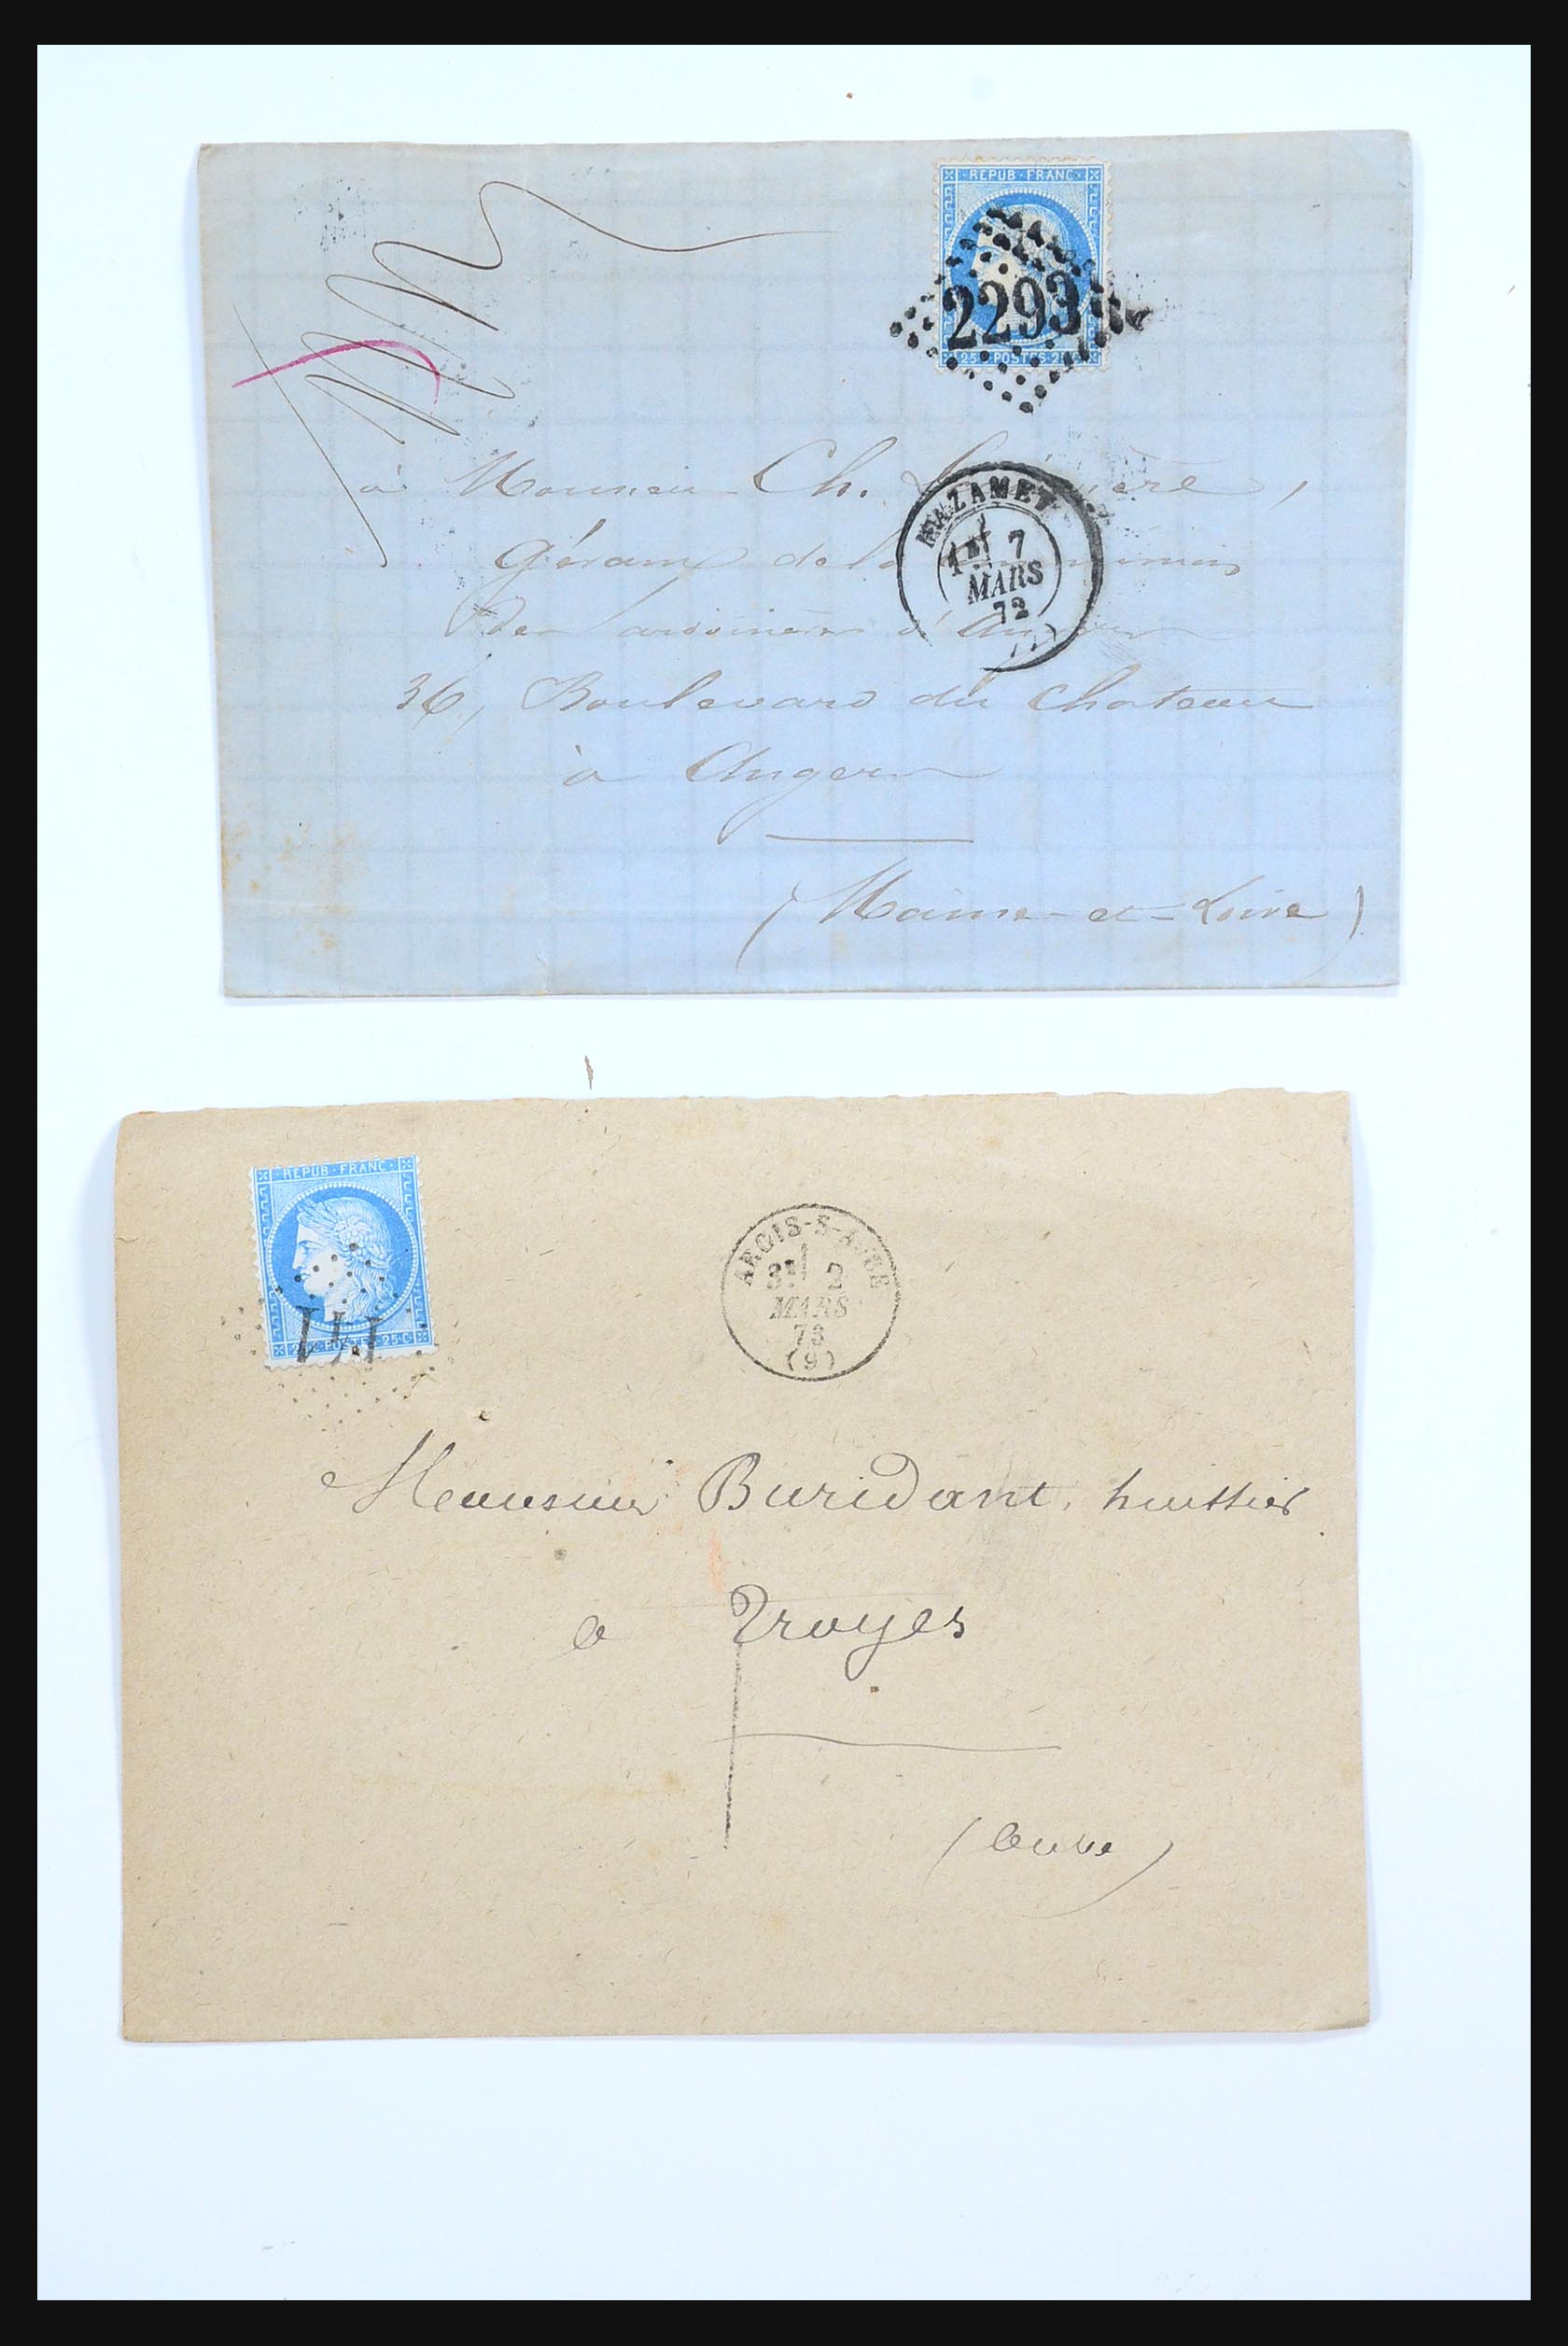 REPUB · FRANC
2293
25 · POSTES · 25 C
à Monsieur Ch.
MAZAMET
7
MARS
72
Gérant de la
des ardoisières d'Angers
36, Boulevard du Chateau
à Angers
(Maine-et-Loire)
REPUB · FRANC
POSTES · 25 · C
ARCIS-S-AUBE
3E 2
MARS
73
(9)
Monsieur Buridant, huissier
a Troyes
(Aube)